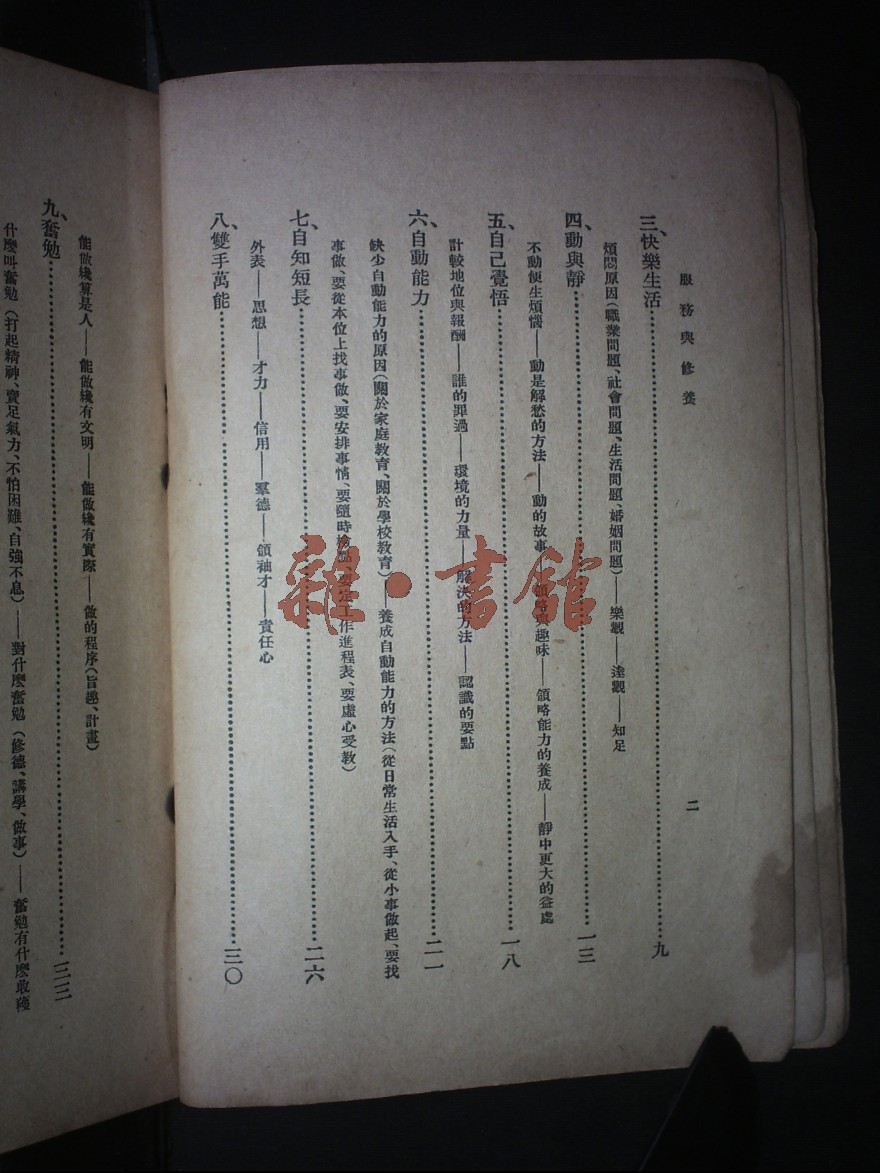 服務與修養
二
三、快樂生活……九
煩悶原因(職業問題、社會問題、生活問題、婚姻問題)——樂觀——達觀——知足
四、動與靜……一三
不動便生煩惱——動是解愁的方法——動的故事——領略與趣味——領略能力的養成——靜中更大的益處
五、自己覺悟……一八
計較地位與報酬——誰的罪過——環境的力量——解決的方法——認識的要點
六、自動能力……二一
缺少自動能力的原因(關於家庭教育、關於學校教育)——養成自動能力的方法(從日常生活入手、從小事做起、要找
事做、要從本位上找事做、要安排事情、要隨時檢點、要定工作進程表、要虛心受教)
七、自知短長……二六
外表——思想——才力——信用——羣德——領袖才——責任心
八、雙手萬能……三〇
能做纔算是人——能做纔有文明——能做纔有實際——做的程序(旨趣、計畫)
九、奮勉……三三
什麽叫奮勉(打起精神、賣足氣力、不怕困難、自強不息)——對什麽奮勉(修德、講學、做事)——奮勉有什麽收穫
雜·書館